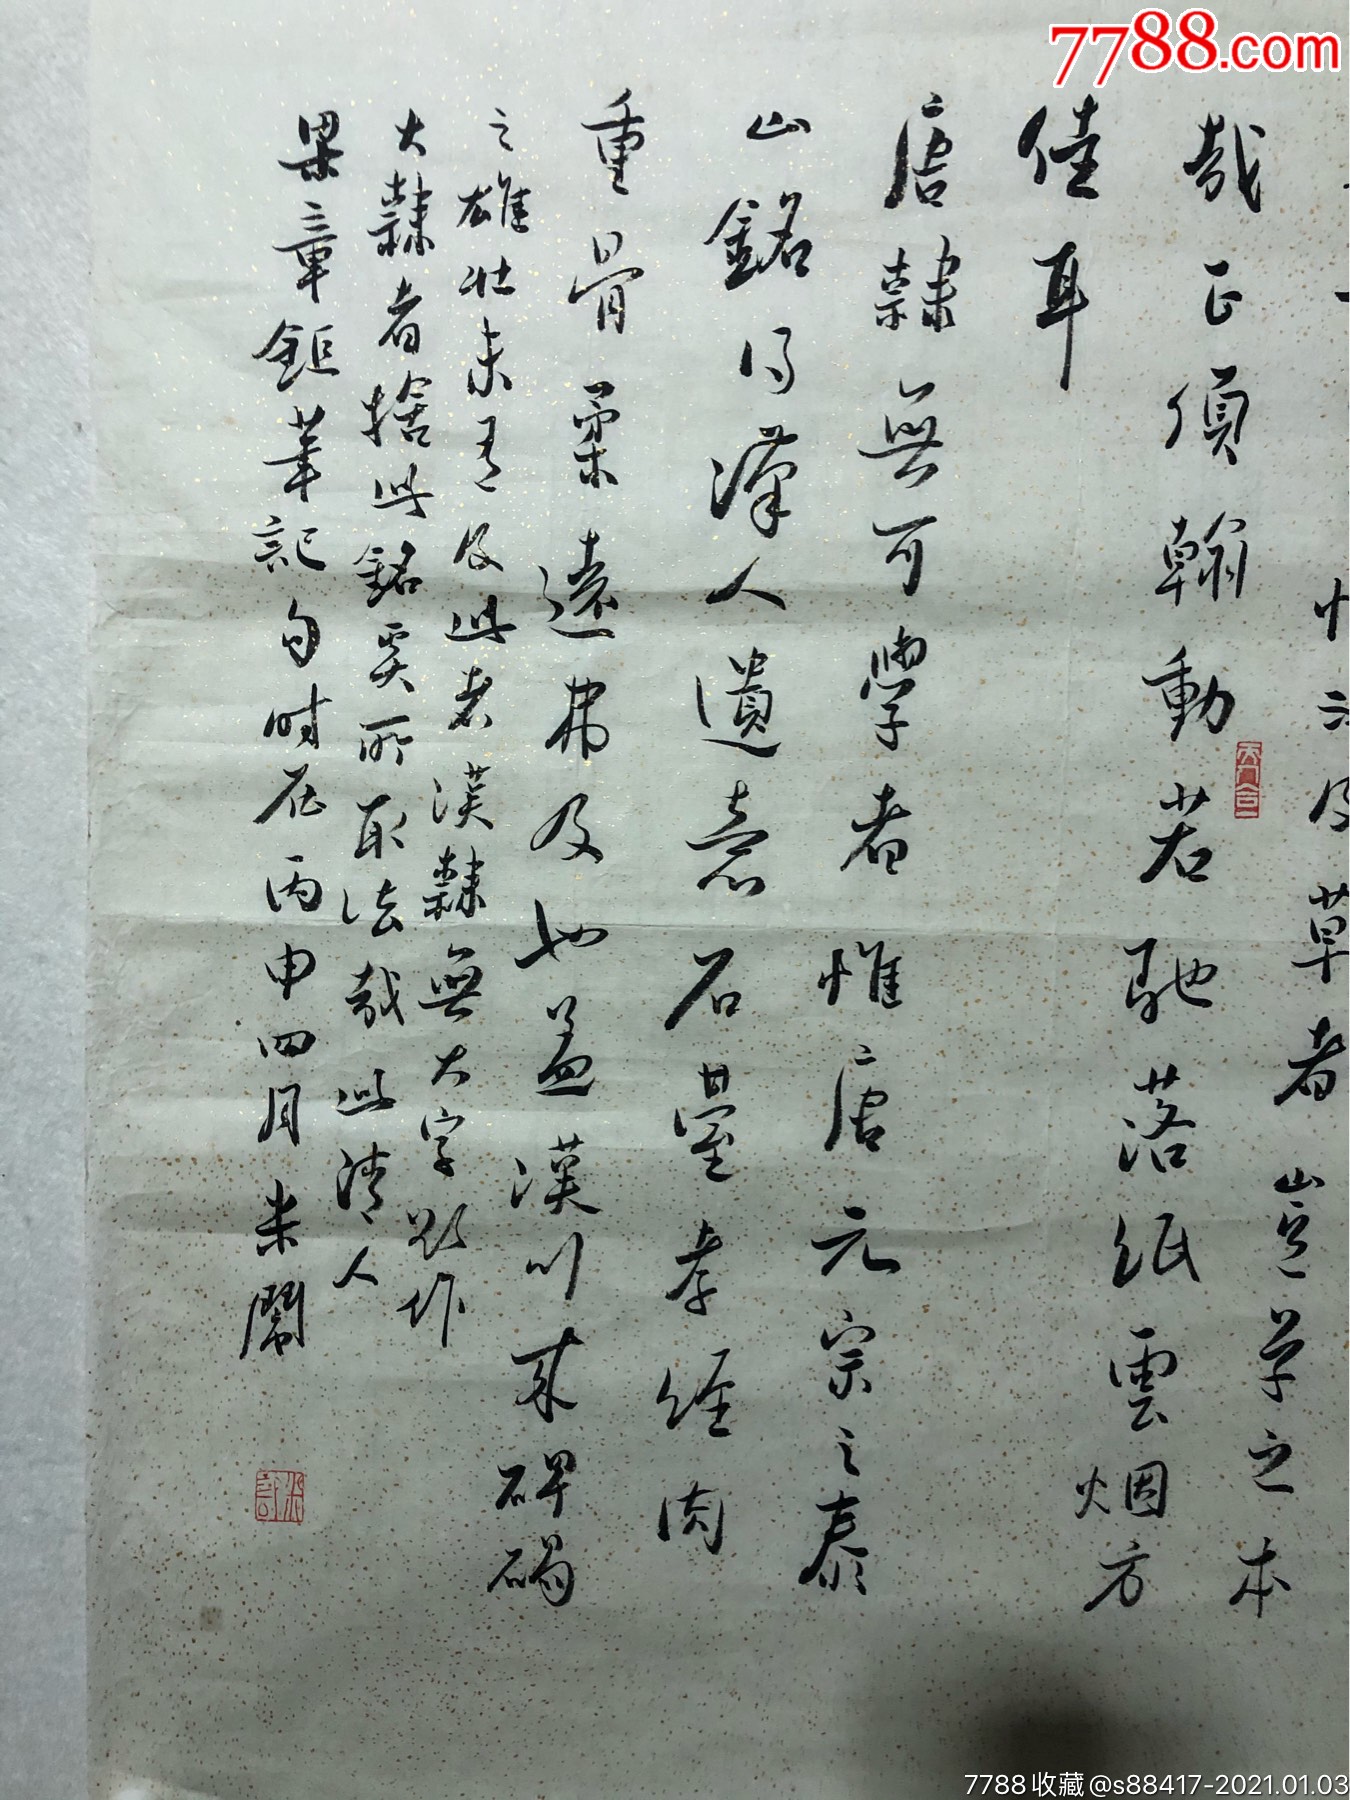 7788.com
及草者豈草之本
哉正須翰動若馳落紙雲烟方
佳耳
唐隸無可學者惟唐元宗之泰
山銘得漢人遺意石臺孝經肉
重骨柔遠弗及也蓋漢以來碑碣
之雄壯未有及此者漢隸無大字欲作
大隸者捨此銘奚所取法哉此清人
梁章鉅筆記句時在丙申四月米鬧
7788收藏@s88417-2021.01.03